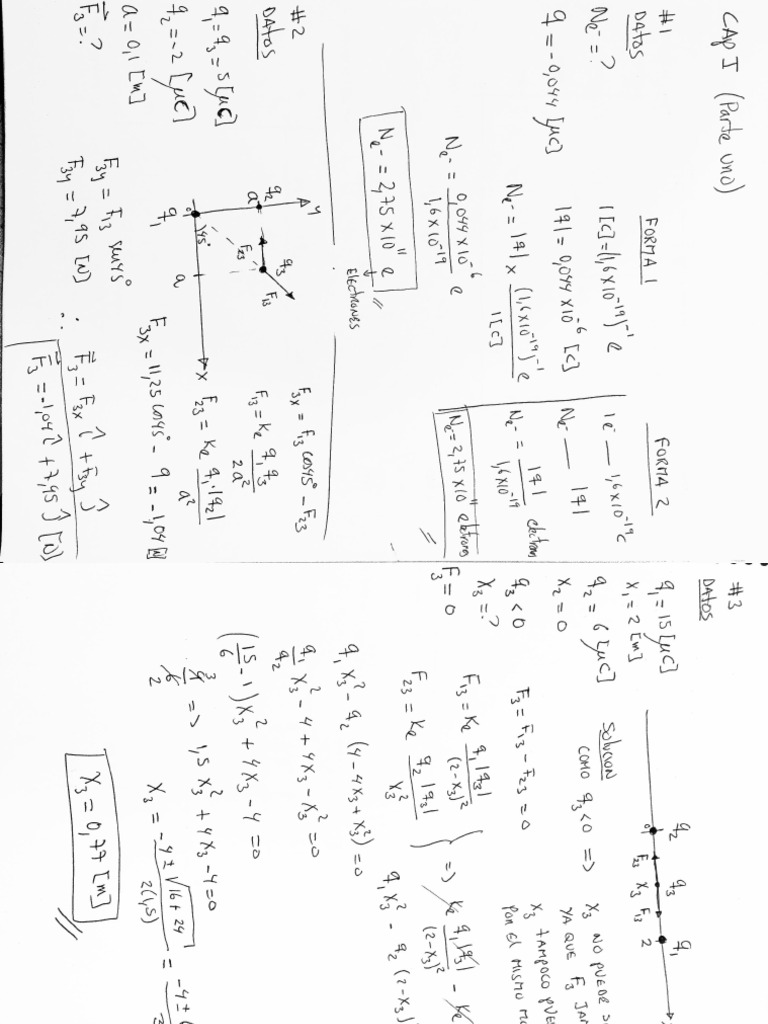 CAP I (Parte uno)
#1
DATOS
Ne⁻ = ?
q = -0,044 [μC]
FORMA 1
1[C] = (1,6×10⁻¹⁹)⁻¹ e
|q| = 0,044×10⁻⁶ [C]
Ne⁻ = |q| × (1,6×10⁻¹⁹)⁻¹ e / 1[C]
Ne⁻ = 0,044×10⁻⁶ / 1,6×10⁻¹⁹ e
Ne⁻ = 2,75×10¹¹ e
ELECTRONES
FORMA 2
1e⁻ — 1,6×10⁻¹⁹ C
Ne⁻ — |q|
Ne⁻ = |q| / 1,6×10⁻¹⁹ electron
Ne⁻ = 2,75×10¹¹ eletrons
#2
DATOS
q₁ = q₃ = 5 [μC]
q₂ = -2 [μC]
a = 0,1 [m]
F⃗₃ = ?
y
q₂ a
q₃
F₂₃ F₁₃
0 45°
q₁ a x
F₃x = F₁₃ cos45° - F₂₃
F₁₃ = Ke q₁q₃ / 2a²
F₂₃ = Ke q₁·|q₂| / a²
F₃x = 11,25 cos45° - 9 = -1,04 [N]
F₃y = F₁₃ sen45°
F₃y = 7,95 [N]
∴ F⃗₃ = F₃x î + F₃y ĵ
F⃗₃ = -1,04 î + 7,95 ĵ [N]
#3
DATOS
q₁ = 15 [μC]
x₁ = 2 [m]
q₂ = 6 [μC]
x₂ = 0
q₃ < 0
x₃ = ?
F₃ = 0
q₂ q₃ q₁
0 F₂₃ x₃ F₁₃ 2
SOLUCION
COMO q₃ < 0 ⇒
x₃ NO PUEDE
YA QUE F₃
x₃ TAMPOCO
POR EL MISMO
F₃ = F₁₃ - F₂₃ = 0
F₁₃ = Ke q₁|q₃| / (2-x₃)²
F₂₃ = Ke q₂|q₃| / x₃²
⇒ Ke q₁|q₃| / (2-x₃)² - Ke
q₁x₃² - q₂ (2-x₃)
q₁x₃² - q₂ (4 - 4x₃ + x₃²) = 0
q₁/q₂ x₃² - 4 + 4x₃ - x₃² = 0
(15/6 - 1) x₃² + 4x₃ - 4 = 0
⇒ 1,5 x₃² + 4x₃ - 4 = 0
x₃ = -4 ± √(16+24) / 2(1,5) = -4 ±
x₃ = 0,77 [m]